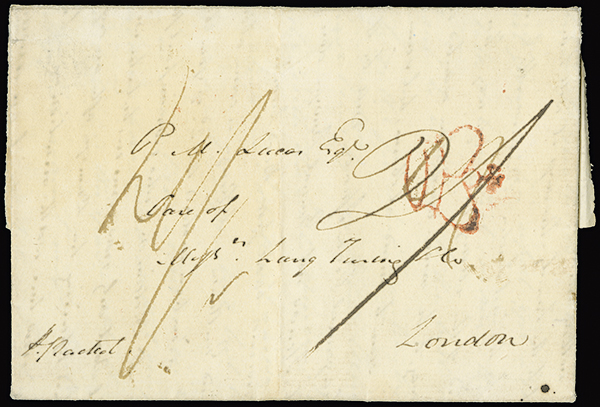 P. M. Lucas Esqr.
Care of
Messrs. Lang Turing & Co
London
pr. Packet.